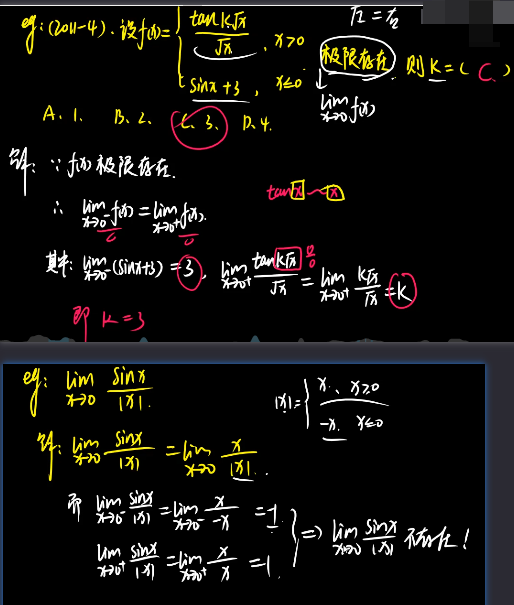 eg: (2011-4). 设f(x)= { tan k√x / √x , x>0
sinx+3 , x≤0
极限存在, 则 K=( C. )
lim x→0 f(x)
A. 1. B. 2. C. 3. D. 4.
解: ∵ f(x) 极限存在.
∴ lim x→0⁻ f(x) = lim x→0⁺ f(x).
tan x ~ x
其中: lim x→0⁻ (sinx+3) = 3, lim x→0⁺ tan k√x / √x = lim x→0⁺ k√x / √x = K
即 K=3
eg: lim x→0 sinx / |x|.
|x|= { x, x≥0
-x, x≤0
解: lim x→0 sinx / |x| = lim x→0 x / |x|.
而 lim x→0⁻ sinx / |x| = lim x→0⁻ x / -x = -1
lim x→0⁺ sinx / |x| = lim x→0⁺ x / x = 1
} ⇒ lim x→0 sinx / |x| 不存在!